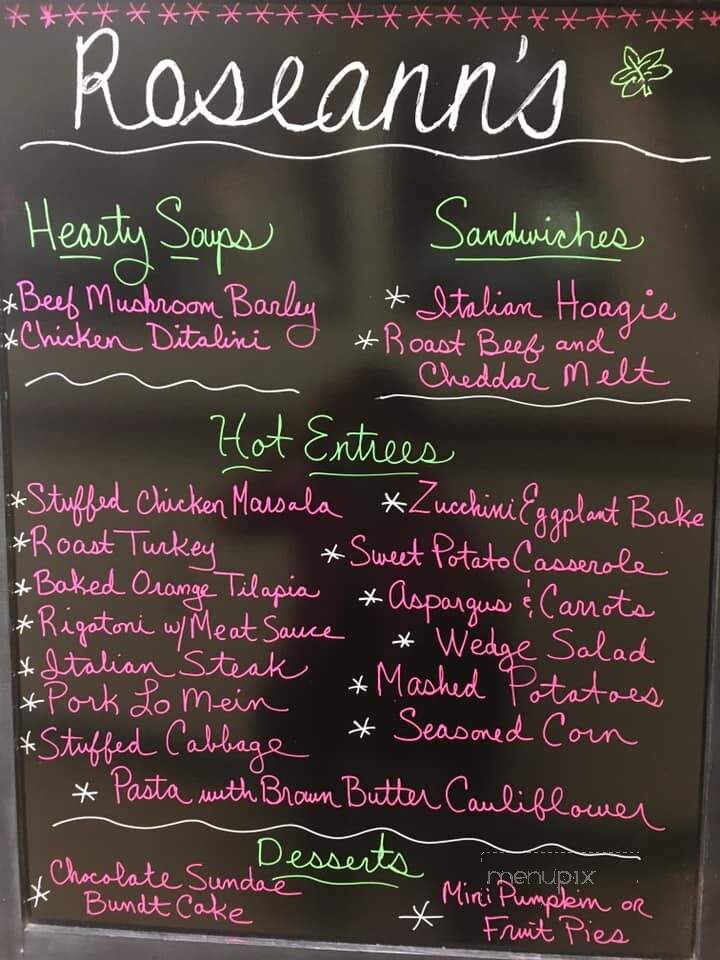 Roseann's
Hearty Soups
*Beef Mushroom Barley
*Chicken Ditalini
Sandwiches
* Italian Hoagie
* Roast Beef and
Cheddar Melt
Hot Entrees
*Stuffed Chicken Marsala
*Roast Turkey
*Baked Orange Tilapia
*Rigatoni w/Meat Sauce
*Italian Steak
*Pork Lo Mein
*Stuffed Cabbage
*Zucchini Eggplant Bake
*Sweet Potato Casserole
*Asparagus & Carrots
* Wedge Salad
* Mashed Potatoes
* Seasoned Corn
* Pasta with Brown Butter Cauliflower
Desserts
* Chocolate Sundae
Bundt Cake
menupix
* Mini Pumpkin or
Fruit Pies